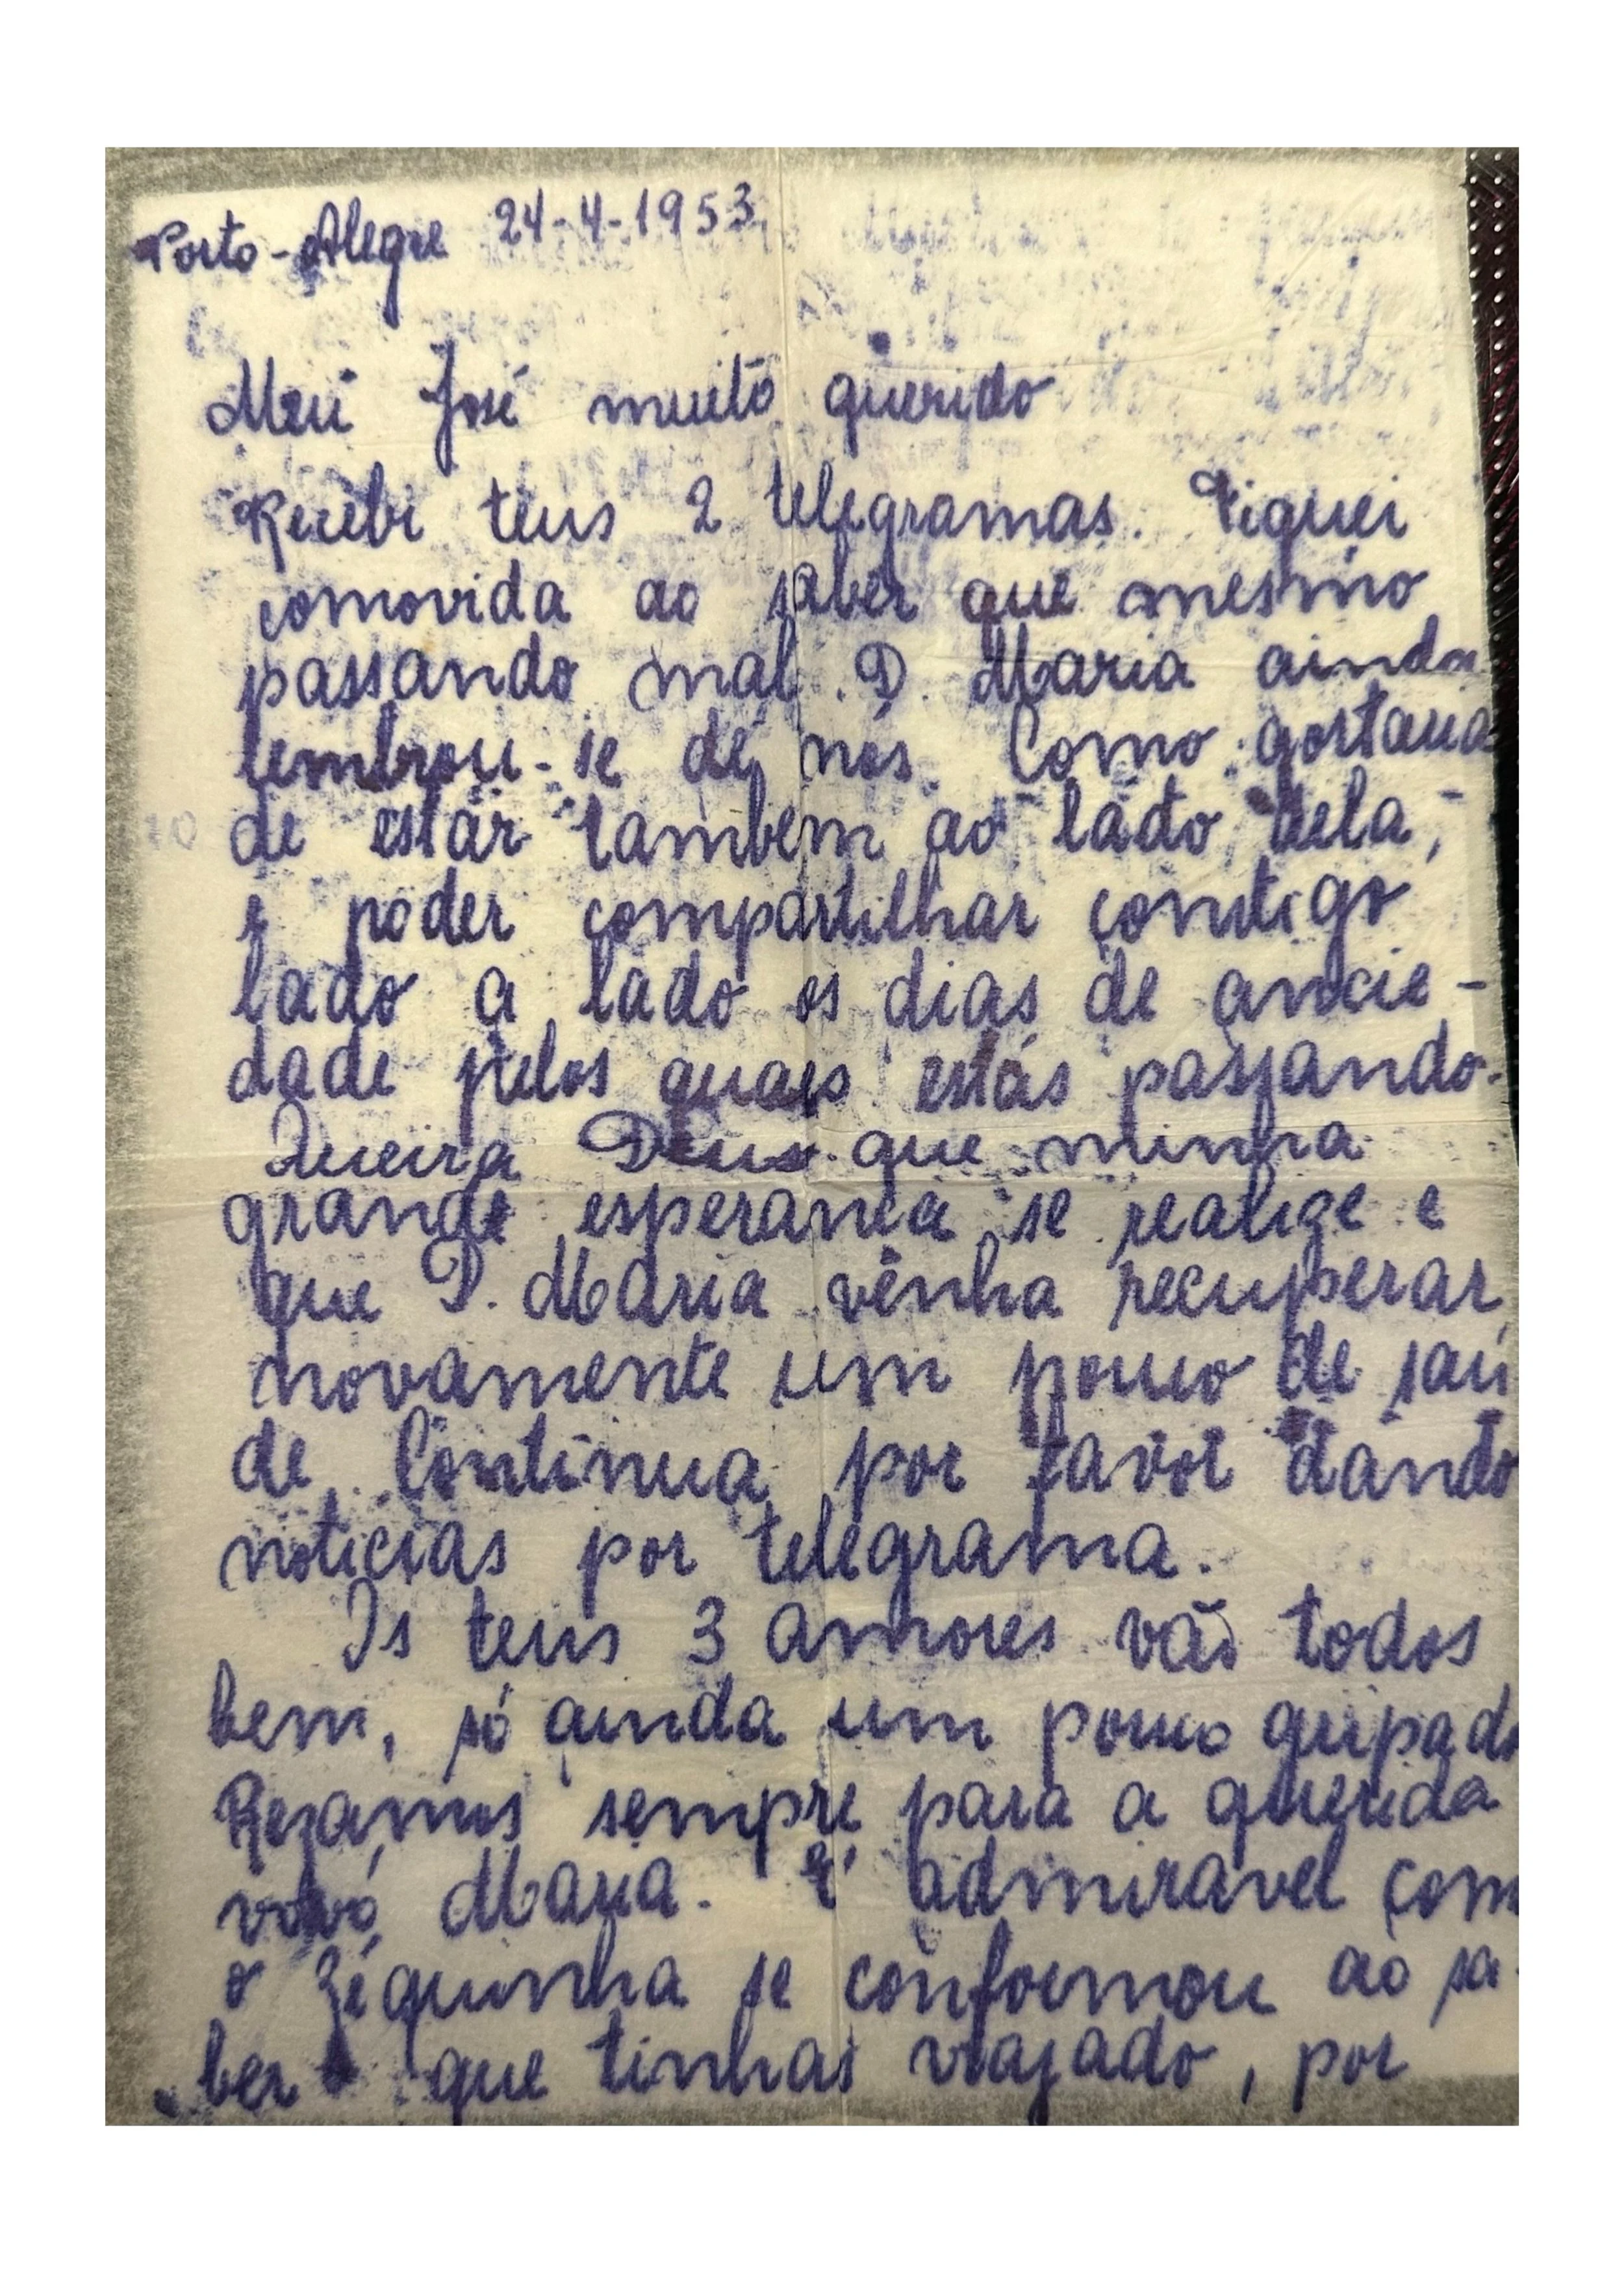 Porto-Alegre 24-4-1953
Meu José muito querido
Recebi teus 2 telegramas. Fiquei
comovida ao saber que mesmo
passando mal D. Maria ainda
lembrou-se de nós. Como gostava
de estar tambem ao lado dela,
e poder compartilhar comtigo
lado a lado os dias de ancie-
dade pelos quaes estás passando.
Queira Deus que minha
grande esperança se realize e
que D. Maria venha recuperar
novamente um pouco de saú
de. Continua por favor dando
noticias por telegrama.
Os teus 3 amores vão todos
bem, só ainda um pouco gripado
Rezamos sempre para a querida
vovó Maria. É admiravel com
o Zéquinha se conformou ao sa-
ber que tinhas viajado, por